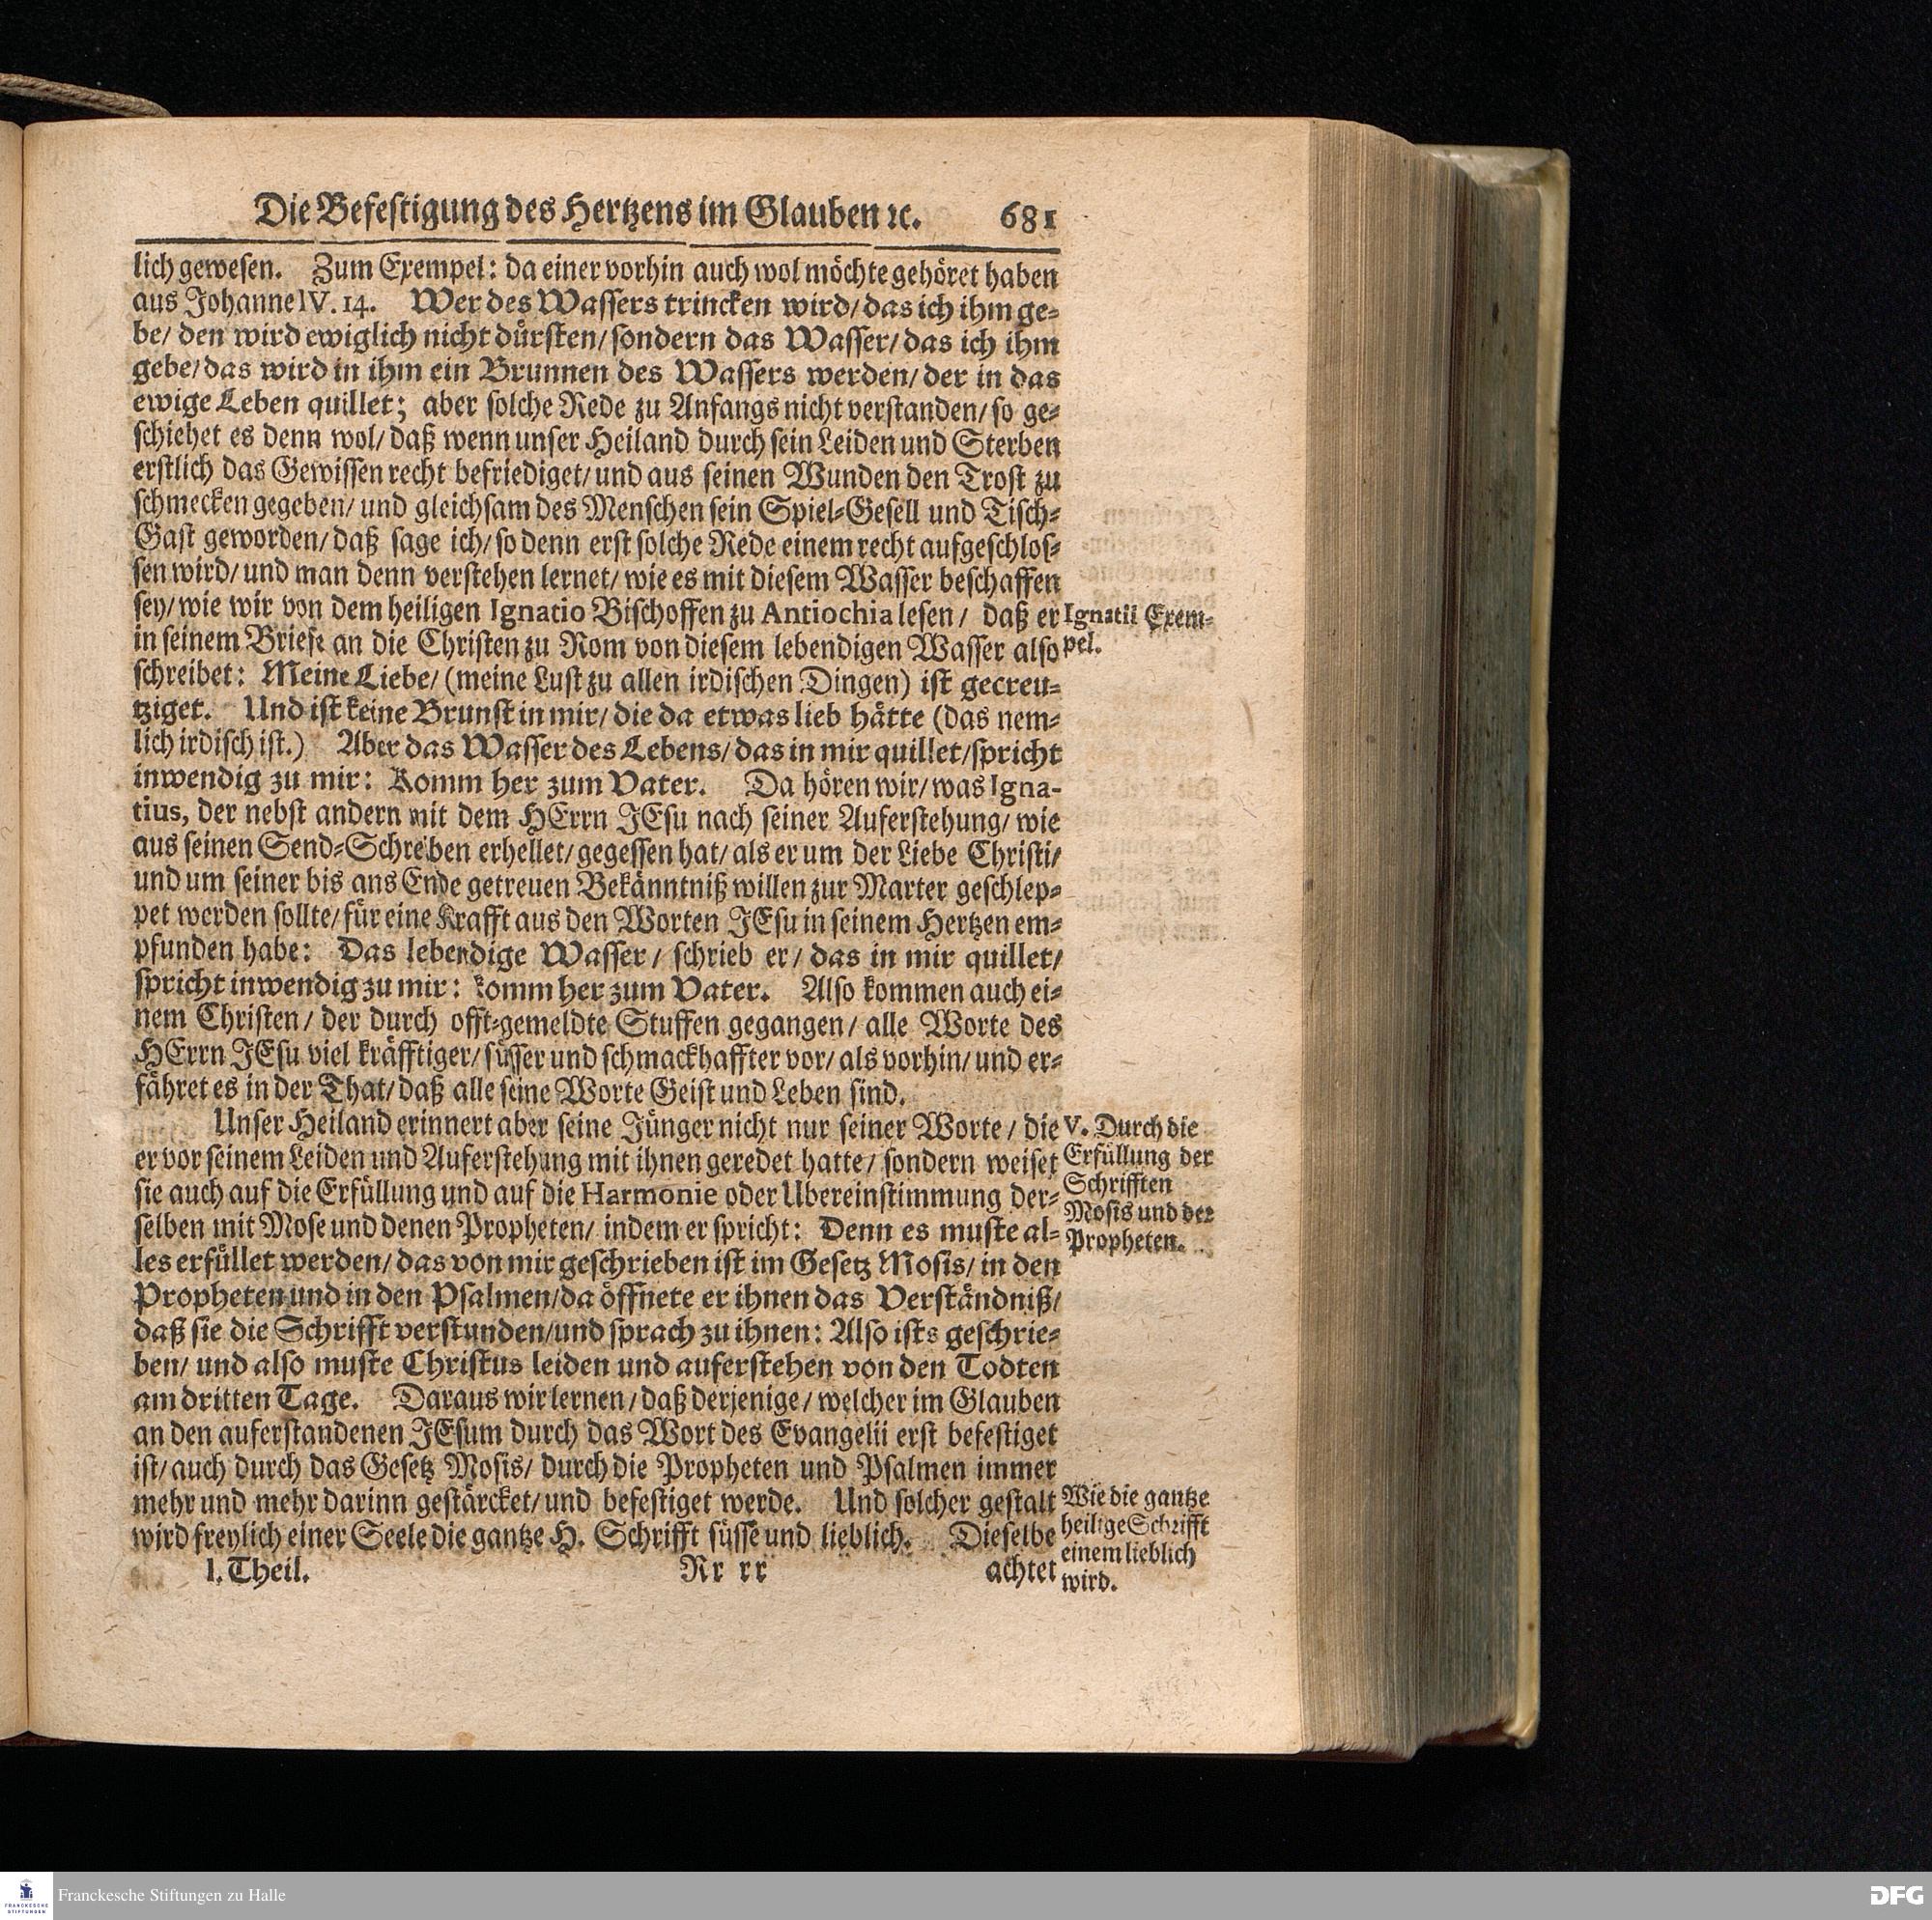 Die Befestigung des Hertzens im Glauben ꝛc. 681
lich gewesen. Zum Exempel: da einer vorhin auch wol möchte gehöret haben
aus Johanne IV. 14. Wer des Wassers trincken wird/ das ich ihm ge-
be/ den wird ewiglich nicht dürsten/ sondern das Wasser/ das ich ihm
gebe/ das wird in ihm ein Brunnen des Wassers werden/ der in das
ewige Leben quillet; aber solche Rede zu Anfangs nicht verstanden/ so ge-
schiehet es denn wol/ daß wenn unser Heiland durch sein Leiden und Sterben
erstlich das Gewissen recht befriediget/ und aus seinen Wunden den Trost zu
schmecken gegeben/ und gleichsam des Menschen sein Spiel-Gesell und Tisch-
Gast geworden/ daß sage ich/ so denn erst solche Rede einem recht aufgeschlos-
sen wird/ und man denn verstehen lernet/ wie es mit diesem Wasser beschaffen
sey/ wie wir von dem heiligen Ignatio Bischoffen zu Antiochia lesen/ daß er
Ignatii Exem-
pel.
in seinem Briefe an die Christen zu Rom von diesem lebendigen Wasser also
schreibet: Meine Liebe/ (meine Lust zu allen irdischen Dingen) ist gecreu-
tziget. Und ist keine Brunst in mir/ die da etwas lieb hätte (das nem-
lich irdisch ist.) Aber das Wasser des Lebens/ das in mir quillet/ spricht
inwendig zu mir: Komm her zum Vater. Da hören wir/ was Igna-
tius, der nebst andern mit dem HErrn JEsu nach seiner Auferstehung/ wie
aus seinen Send-Schreiben erhellet/ gegessen hat/ als er um der Liebe Christi/
und um seiner bis ans Ende getreuen Bekänntniß willen zur Marter geschlep-
pet werden sollte/ für eine Krafft aus den Worten JEsu in seinem Hertzen em-
pfunden habe: Das lebendige Wasser/ schrieb er/ das in mir quillet/
spricht inwendig zu mir: komm her zum Vater. Also kommen auch ei-
nem Christen/ der durch offt-gemeldte Stuffen gegangen/ alle Worte des
HErrn JEsu viel kräfftiger/ süsser und schmackhaffter vor/ als vorhin/ und er-
fähret es in der That/ daß alle seine Worte Geist und Leben sind.
Unser Heiland erinnert aber seine Jünger nicht nur seiner Worte/ die
er vor seinem Leiden und Auferstehung mit ihnen geredet hatte/ sondern weiset
sie auch auf die Erfüllung und auf die Harmonie oder Ubereinstimmung der-
selben mit Mose und denen Propheten/ indem er spricht: Denn es muste al-
V. Durch die
Erfüllung der
Schrifften
Mosis und der
Propheten.
les erfüllet werden/ das von mir geschrieben ist im Gesetz Mosis/ in den
Propheten und in den Psalmen/ da öffnete er ihnen das Verständniß/
daß sie die Schrifft verstunden/ und sprach zu ihnen: Also ists geschrie-
ben/ und also muste Christus leiden und auferstehen von den Todten
am dritten Tage. Daraus wir lernen/ daß derjenige/ welcher im Glauben
an den auferstandenen JEsum durch das Wort des Evangelii erst befestiget
ist/ auch durch das Gesetz Mosis/ durch die Propheten und Psalmen immer
mehr und mehr darinn gestärcket/ und befestiget werde. Und solcher gestalt
wird freylich einer Seele die gantze H. Schrifft süsse und lieblich. Dieselbe
Wie die gantze
heilige Schrifft
einem lieblich
wird.
I. Theil. Rr rr achtet
Franckesche Stiftungen zu Halle
FRANCKESCHE
STIFTUNGEN
DFG